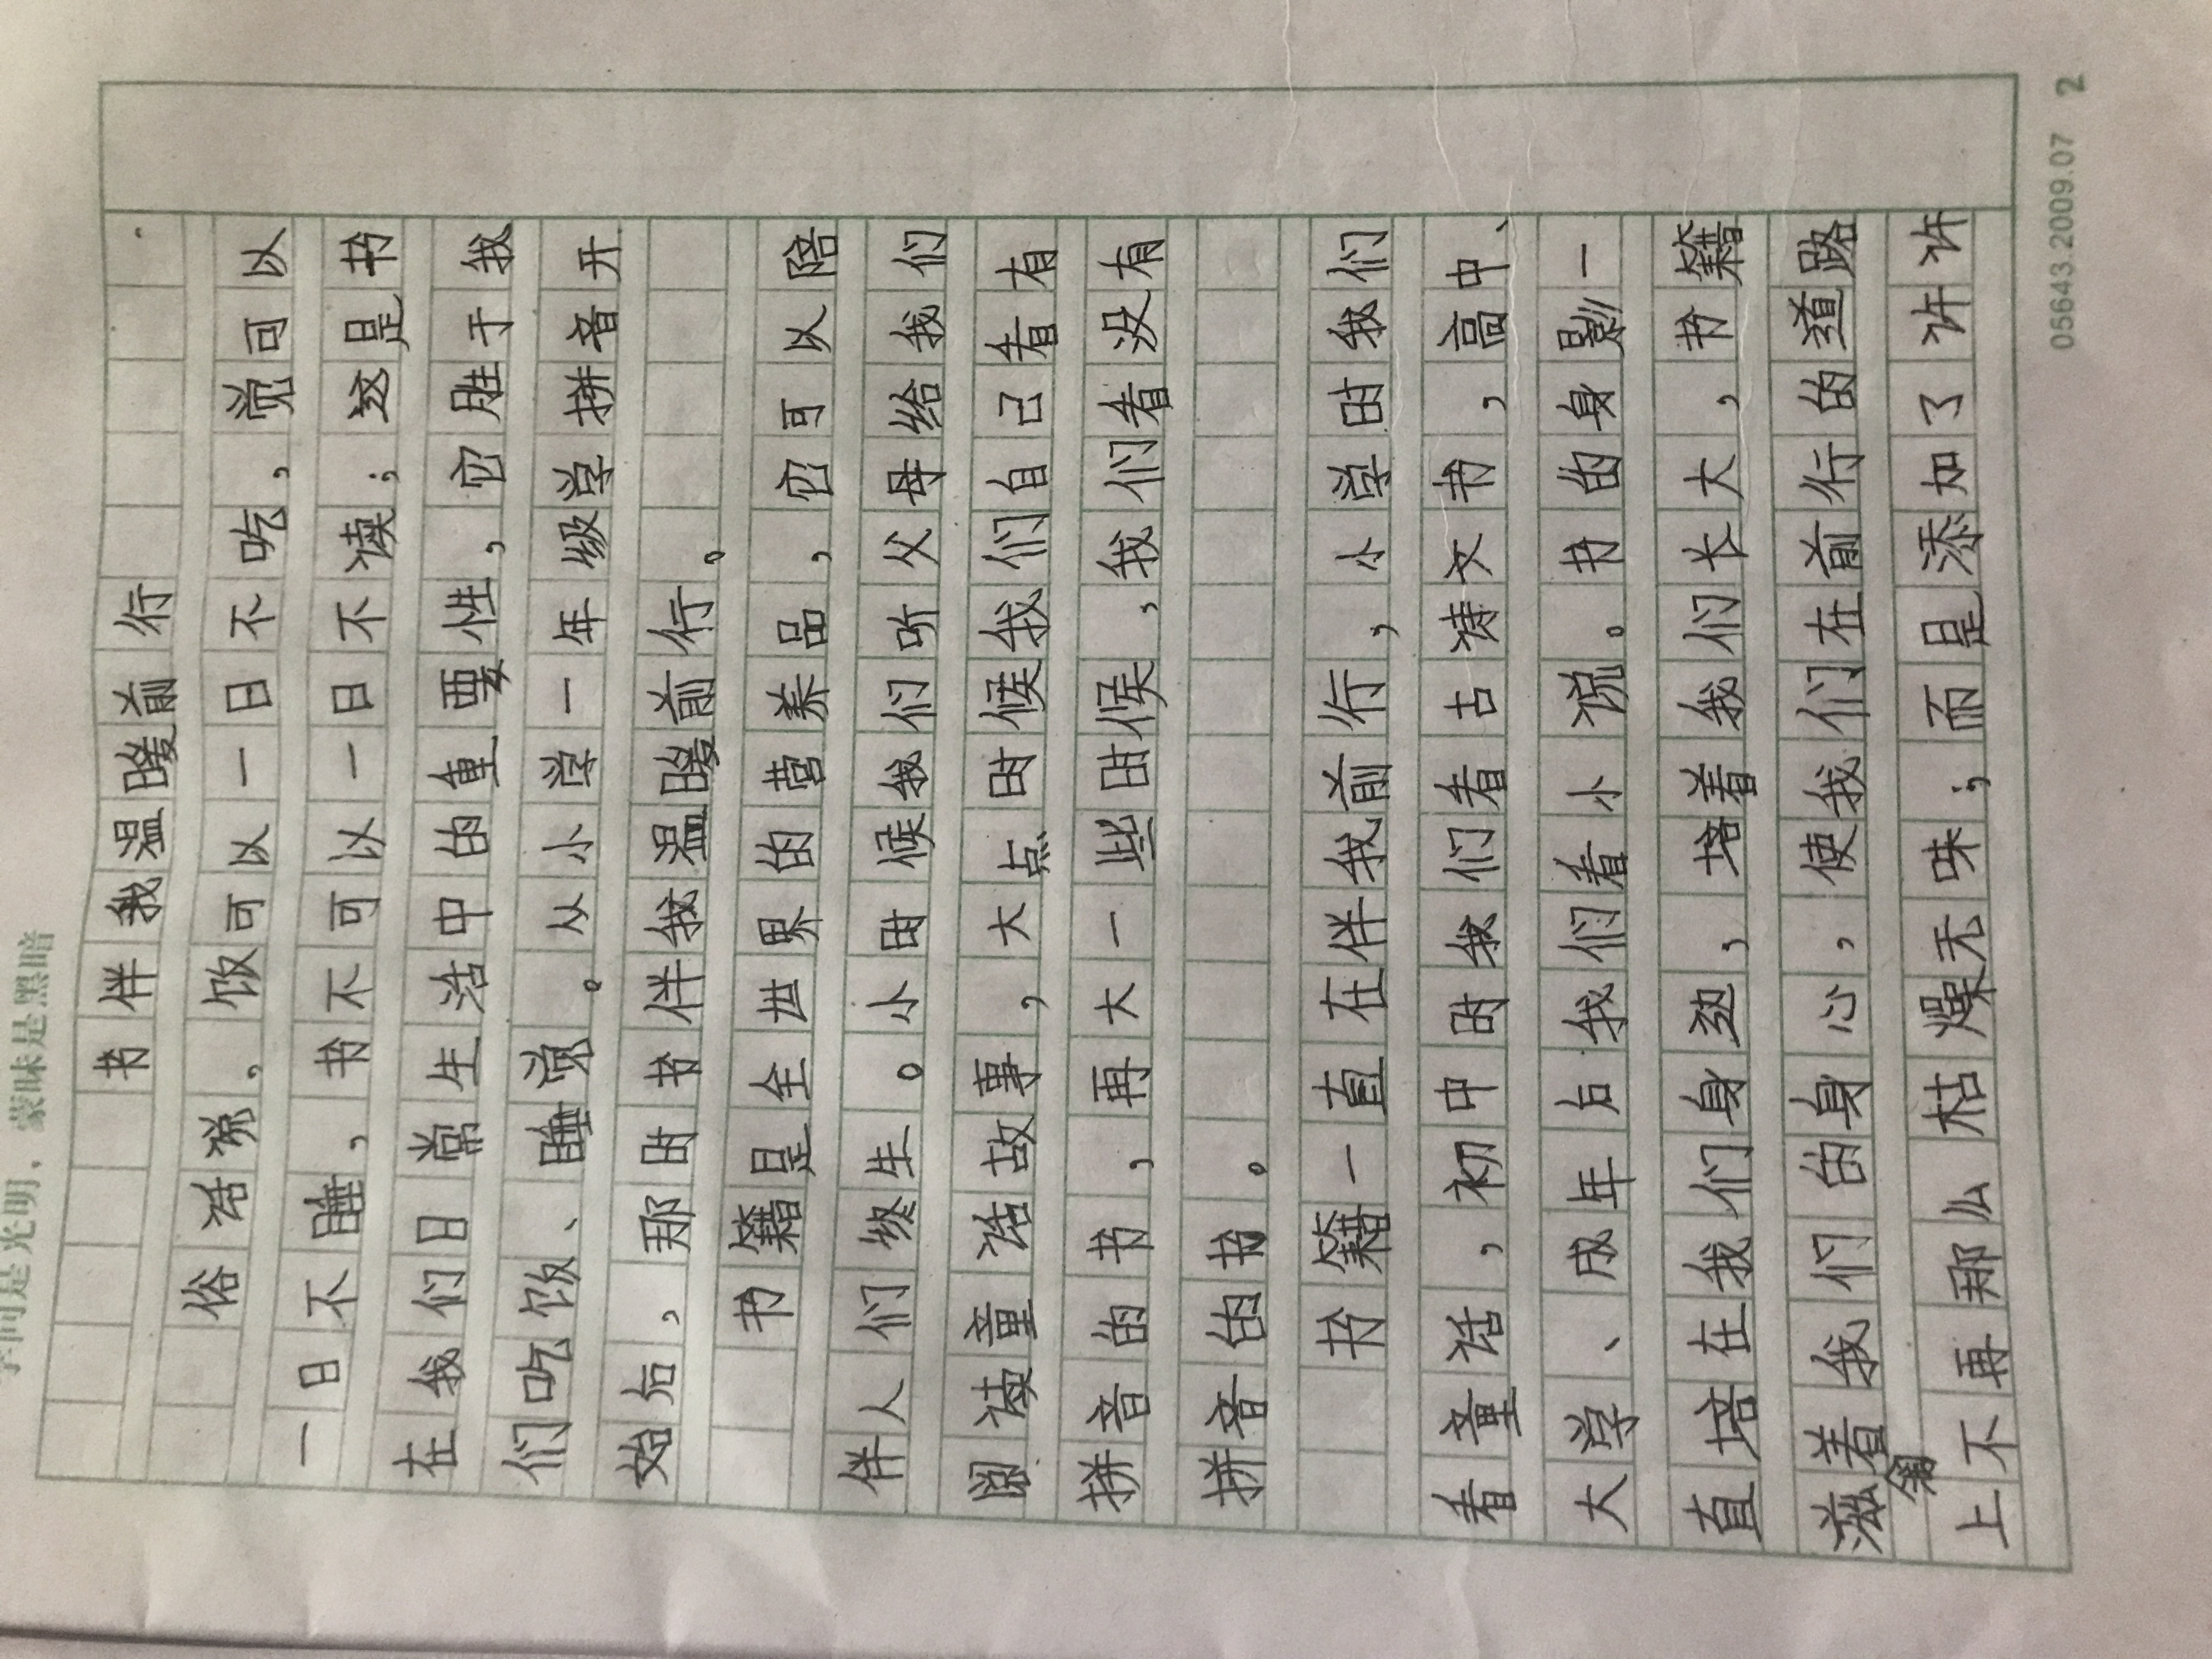 学问是光明，蒙昧是黑暗
书伴我温暖前行
俗话说，饭可以一日不吃，觉可以
一日不睡，书不可以一日不读；这是书
在我们日常生活中的重要性，它胜于我
们吃饭、睡觉。从小学一年级学拼音开
始后，那时书伴我温暖前行。
书籍是全世界的营养品，它可以陪
伴人们终生。小时候我们听父母给我们
阅读童话故事，大点时候我们自己看有
拼音的书，再大一些时候，我们看没有
拼音的书。
书籍一直在伴我前行，小学时我们
看童话，初中时我们看古诗文书，高中、
大学、成年后我们看小说。书的身影一
直培在我们身边，培着我们长大，书籍
滋着我们的身心，使我们在前行的道路
上不再那么枯燥无味；而是添加了许许
05643.2009.07 2